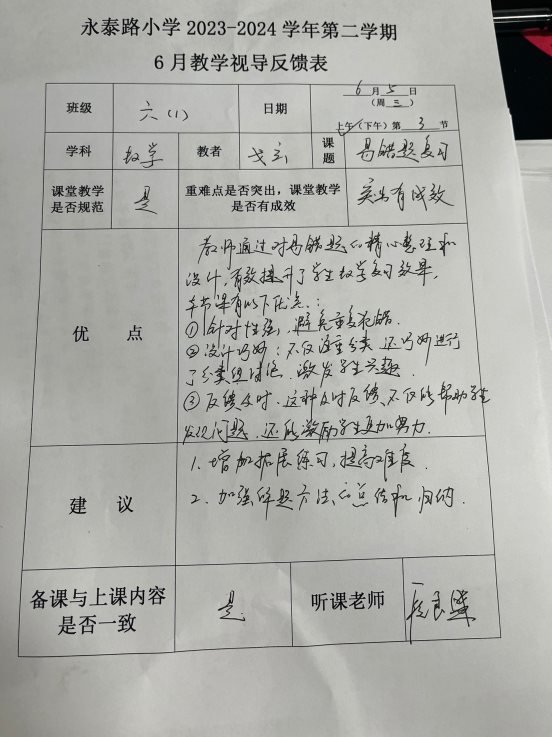 永泰路小学 2023-2024 学年第二学期
6 月教学视导反馈表
班级 六（1） 日期 6 月 5 日
（周 三 ）
上午（下午）第 3 节
学科 数学 教者 课题 易错题复习
课堂教学是否规范 是 重难点是否突出，课堂教学是否有成效 突出有成效
优 点
教师通过对易错题的精心整理和
设计，有效提升了学生数学复习效果，
本节课有以下优点：
①针对性强，避免重复犯错．
②设计巧妙：不仅注重分类，还巧妙进行
了分类组合，激发学生兴趣．
③反馈及时．这种及时反馈，不仅能帮助学生
发现问题，还能激励学生更加努力．
建 议
1、增加拓展练习，提高难度．
2、加强解题方法的总结和归纳．
备课与上课内容是否一致 是． 听课老师